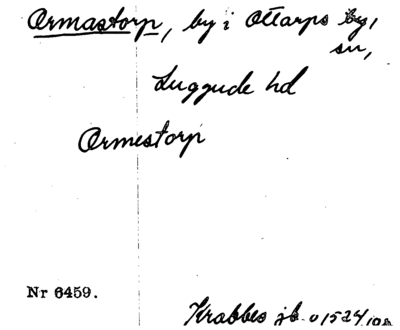 Ormastorp, by i Ottarps
sn,
Luggude hd
Ormestorp
Nr 6459.
Krabbes jb